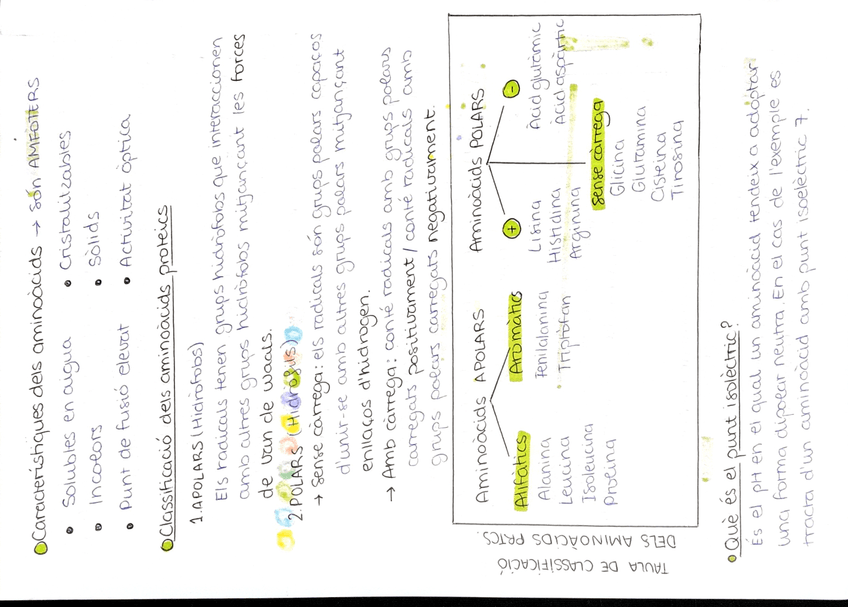 Característiques dels aminoàcids → són AMFÒTERS
• Solubles en aigua • Cristalitzables
• Incolors • Sòlids
• Punt de fusió elevat • Activitat òptica
Classificació dels aminoàcids proteics
1. APOLARS (Hidròfobs)
Els radicals tenen grups hidròfobs que interaccionen
amb altres grups hidròfobs mitjançant les forces
de Van de Waals.
2. POLARS (Hidròfils)
→ Sense càrrega: els radicals són grups polars capaços
d'unir-se amb altres grups polars mitjançant
enllaços d'hidrogen.
→ Amb càrrega: conté radicals amb grups polars
carregats positivament / conté radicals amb
grups polars carregats negativament.
TAULA DE CLASSIFICACIÓ
DELS AMINOÀCIDS PRTCS.
Aminoàcids APOLARS
Alifàtics
Alanina
Leucina
Isoleucina
Prolina
Aromàtics
Fenilalanina
Triptòfan
Aminoàcids POLARS
+
Lisina
Histidina
Arginina
Sense càrrega
Glicina
Glutamina
Cisteïna
Tirosina
-
Àcid glutàmic
Àcid aspàrtic
• Què és el punt isolèctric?
És el pH en el qual un aminoàcid tendeix a adoptar
una forma dipolar neutra. En el cas de l'exemple es
tracta d'un aminoàcid amb punt isoelèctric 7.